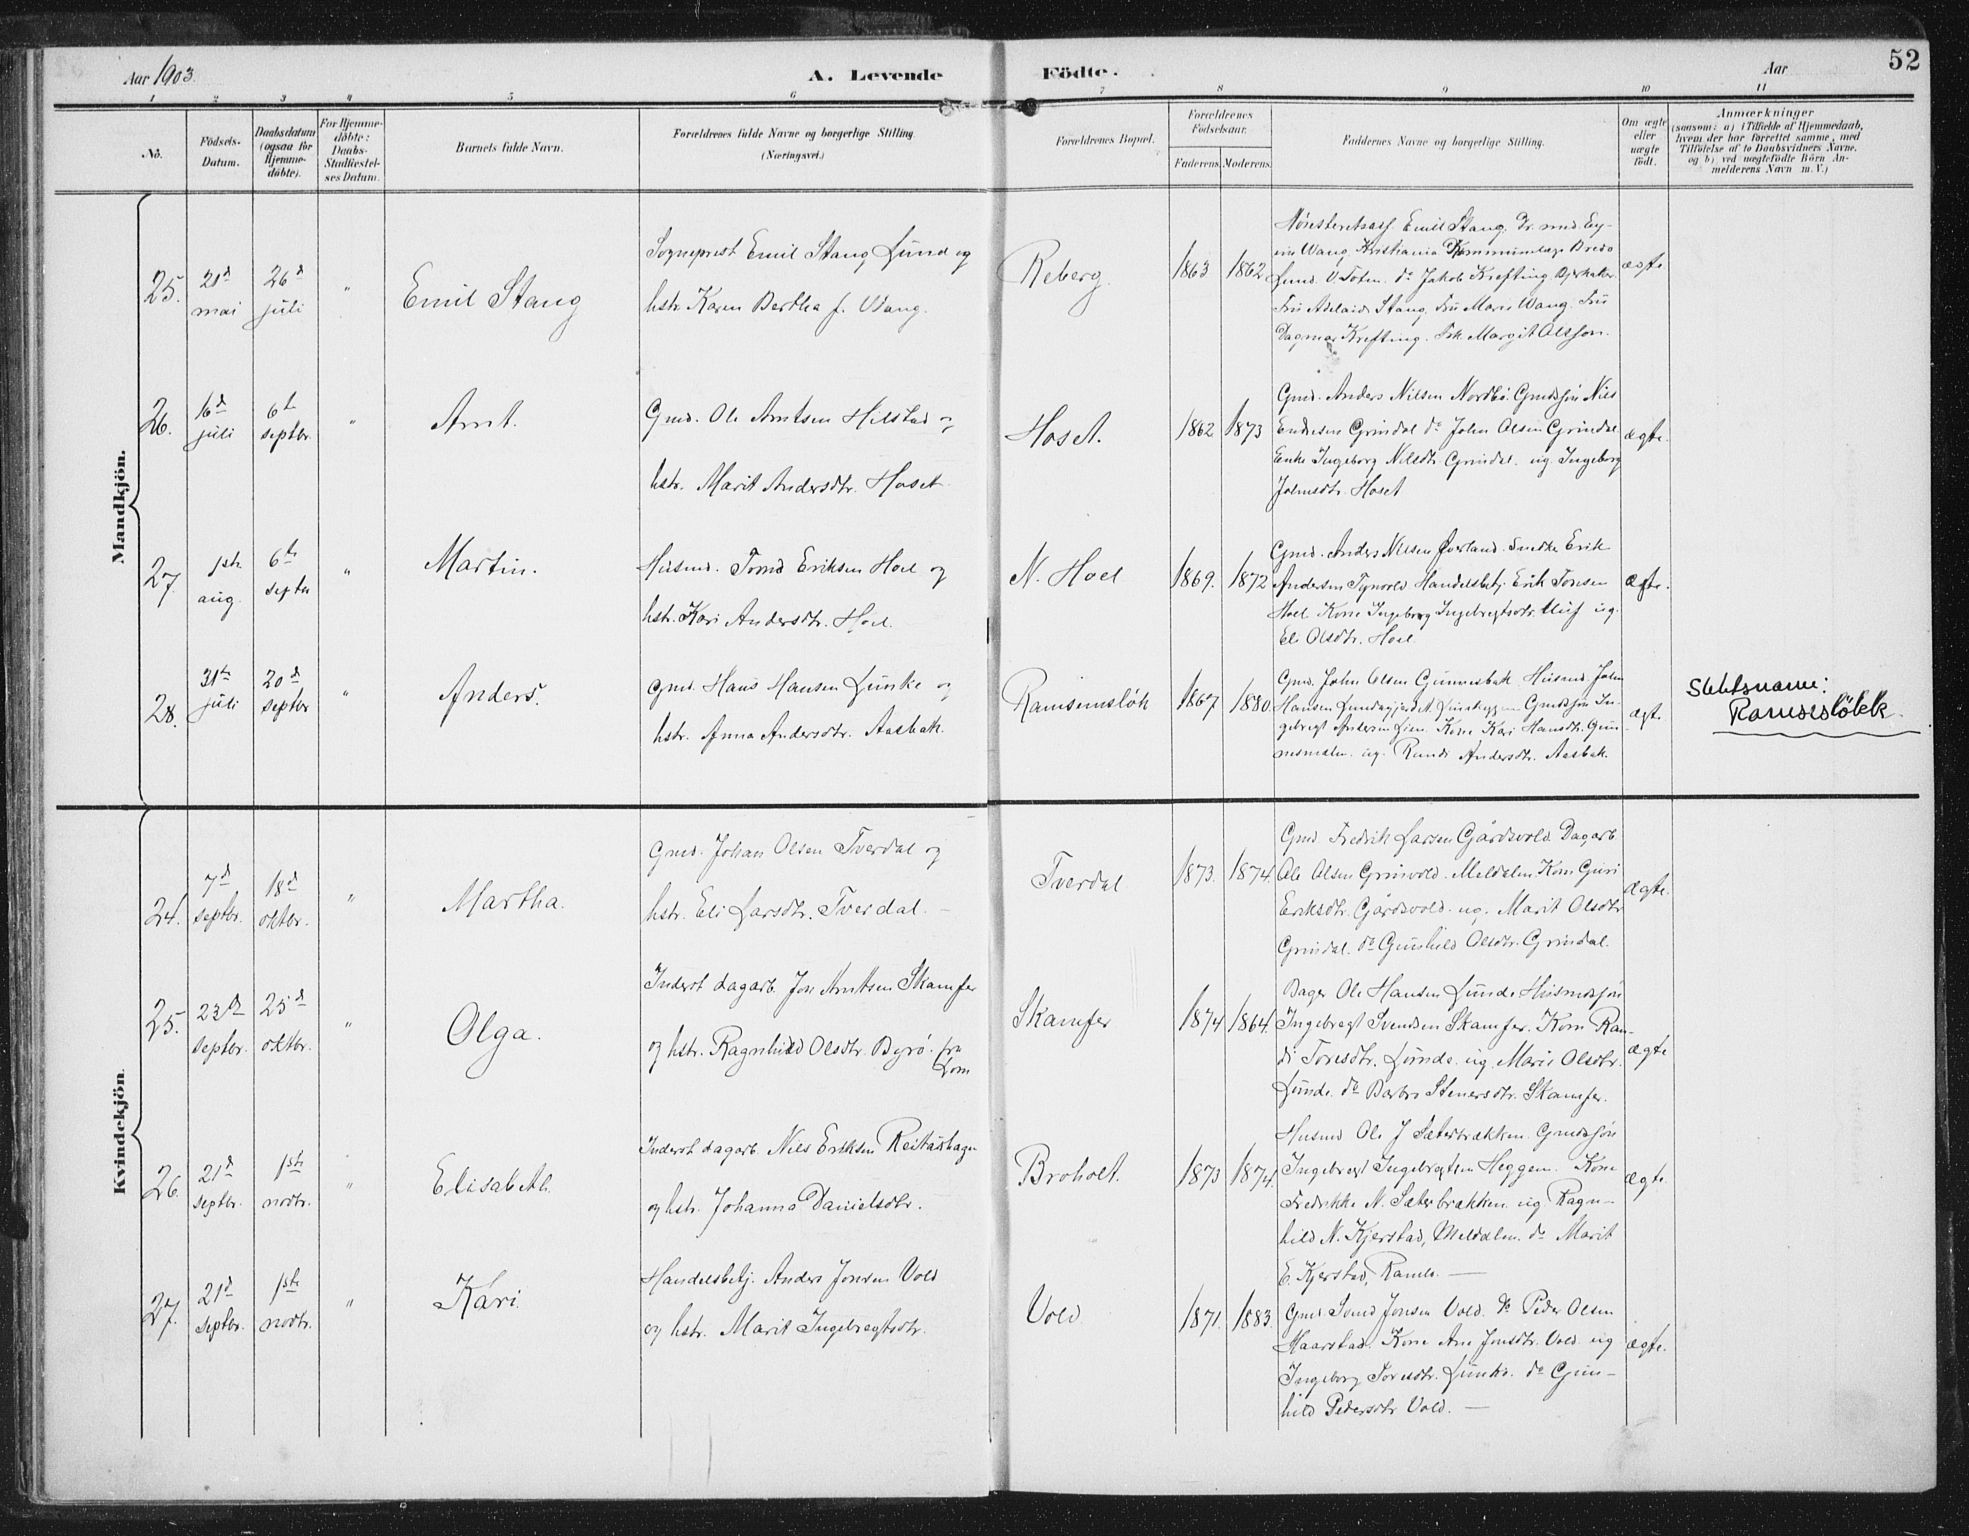 Aar 1903. A. Levende Födte. Aar 52
1 2 3 4 5 6 7 8 9 10 11
No.
Födsels-Datum.
Daabsdatum (ogsaa for Hjemme-döbte).
For Hjemme-döbte: Daabs-Stadfæstel-ses Datum.
Barnets fulde Navn.
Forældrenes fulde Navne og borgerlige Stilling. (Næringsvei.)
Forældrenes Bopæl.
Forældrenes Födselsaar.
Faderens. Moderens.
Faddernes Navne og borgerlige Stilling.
Om ægte eller uægte födt.
Anmærkninger
(saasom: a) i Tilfælde af Hjemmedaab,
hvem der har forrettet samme, med
Tilföielse af to Daabsvidners Navne,
og b) ved uægtefödte Börn An-
melderens Navn m. V.)
Mandkjön.
25. 21d mai 26d juli " Emil Stang
Sogneprest Emil Stang Lund og
hstr. Karen Bertha f. Wang.
Reberg. 1863 1862
Emil Stang, Gr. med. Ey-
Wang Kristiania Kommunelæge Bredo
Lund V. Toten. do Jakob Krefting Bjerkaker
Fru Adelaide Stang, Fru Marie Wang. Fru
Dagmar Krefting. Frk. Margit Olsson.
ægte
26. 16d juli 6th septbr. " Arnt.
Gmd. Ole Arntsen Hilstad og
hstr. Marit Andersdtr. Hoset
Hoset. 1862 1873
Gmd. Anders Nilsen Nordbö. Gmdssön Nils
Endresen Grindal do John Olsen Grindal
Enke Ingeborg Nilsdtr. Grindal. ug. Ingeborg
Johnsdtr. Hoset
ægte.
27. 1ste aug. 6th septbr " Martin.
Husmd. Tomd Eriksen Hoel og
hstr. Kari Andersdtr. Hoel.
N. Hoel 1869. 1872
Gmd. Anders Nilsen Överland. Smedke Erik
Andersen Tynvold Handelsbetj. Erik Tonsen
Hoel Kone Ingeborg Ingebregtsdtr. Uuf ug.
Eli Olsdtr. Hoel
Ægte.
28. 31te juli 20d septbr " Anders.
Gmd. Hans Hansen Lunke og
hstr. Anna Andersdtr. Aasbak.
Ramsemslök 1867 1880.
Gmd. John Olsen Gunnesbak Husmd. John
Hansen Gmdssön In-
gebregt Andersen Lien. Kone Kari Hansdtr. Gun-
nesmelen. ug. Randi Andersdtr. Aasbak.
ægte
Slektsnavn:
Ramseslökk.
Kvindekjön.
24. 7d septbr. 18d oktbr. " Martha.
Gmd. Johan Olsen Tverdal og
hstr. Eli Larsdtr. Tverdal.
Tverdal 1873. 1874.
Gmd Fredrik Larsen Gårdsvold. Dagarb.
Ole Olsen Grinvold. Meldalen Kone Guri
Eriksdtr. Gårdsvold. ug. Marit Olsdtr
Grindal. do Gunhild Olsdtr. Grindal.
Ægte.
25. 23d septbr. 25d oktbr. " Olga.
Inderst dagarb. Jon Arntsen Skamfer
og hstr. Ragnhild Olsdtr. Byrö. fra Lom
Skamfer 1874 1864.
Bager Ole Hansen Lunde Husmdssön
Ingebregt Svendsen Skamfer. Kone Ran-
di Toresdtr. Lunde. ug. Marie Olsdtr.
Lunde. do Barbro Stenersdtr. Skamfer.
ægte
26. 21d septbr. 1ste novbr. " Elisabeth.
Inderst dagarb. Nils Eriksen Reitashagn
og hstr. Johanna Danielsdtr.
Broholt. 1873 1874.
Husmd Ole J Sæterbrækken. Gmdssön
Ingebregt Ingebregtsen Heggem. Kone
Fredrikke N. Sæterbrækken. ug. Ragn-
hild N. Kjerstad, Meldalen. do Marit
E. Kjerstad, Ramlo. —
Ægte.
27. 21d septbr. 1ste novbr. " Kari
Handelsbetj. Anders Jonsen Vold
og hstr. Marit Ingebregtsdtr.
Vold 1871. 1883.
Gmd Svend Jonsen Vold. do Peder Olsen
Haarstad. Kone Ane Jonsdtr. Vold ug
Ingeborg Toresdtr. Lunke. do Gun-
hild Pedersdtr Vold. —
ægte.